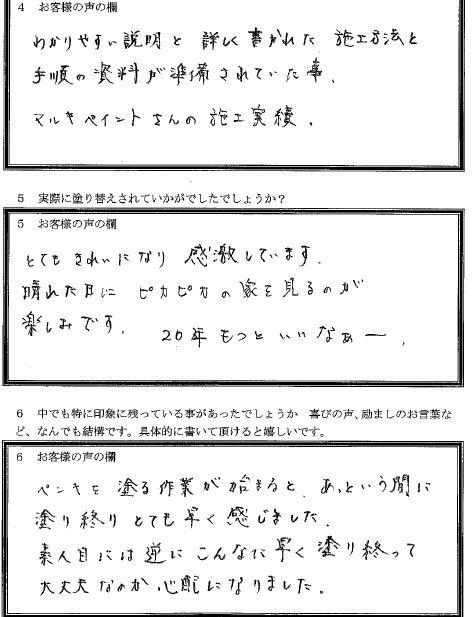 4 お客様の声の欄
わかりやすい説明と 詳しく書かれた 施工方法と
手順の資料が準備されていた事.
マルキペイントさんの施工実績.
5 実際に塗り替えされていかがでしたでしょうか？
5 お客様の声の欄
とても きれいになり 感激しています.
晴れた日に ピカピカの家を見るのが
楽しみです. 20年もつといいなぁー.
6 中でも特に印象に残っている事があったでしょうか 喜びの声、励ましのお言葉な
ど、なんでも結構です。具体的に書いて頂けると嬉しいです。
6 お客様の声の欄
ペンキを 塗る作業が始まると、あっという間に
塗り終り とても早く感じました.
素人目には逆に こんなに早く塗り終って
大丈夫なのか 心配になりました.